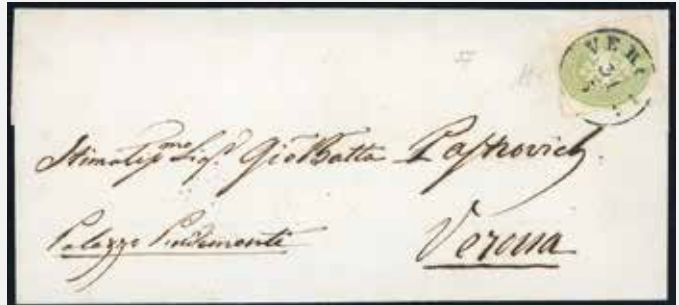 VERO
31
Stimatiss.mo Sig.r Gio Batta Pastrovich.
Palazzo Pindemonti
Verona